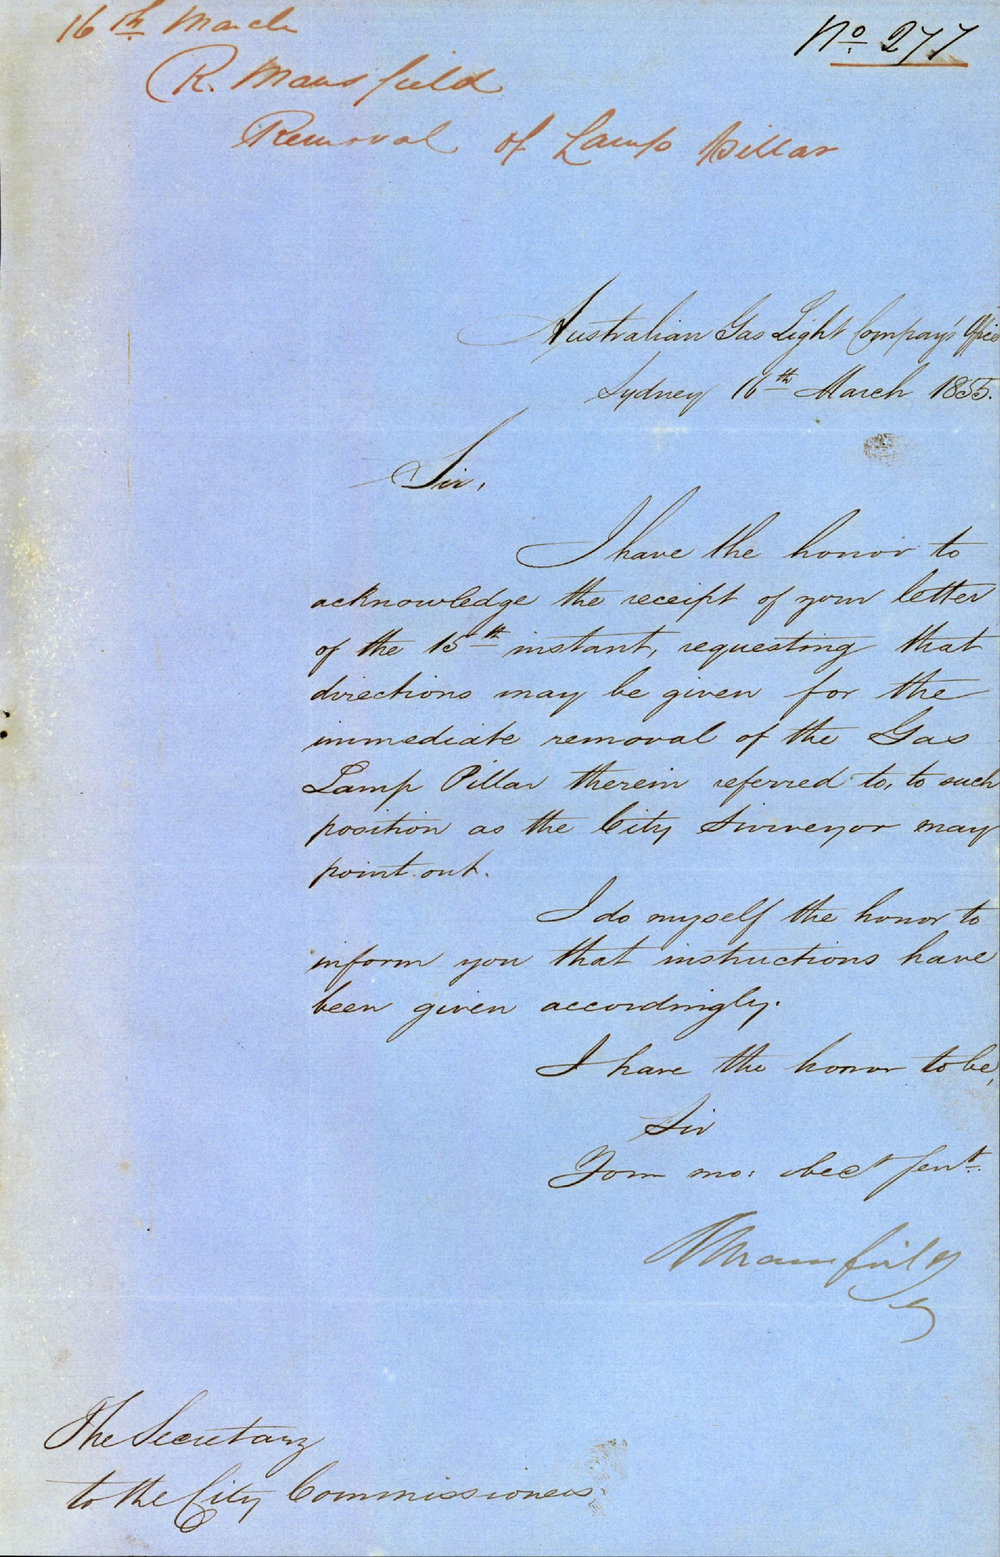 16th March
No. 277
R. Mansfield
Removal of Lamp Pillar
Australian Gas Light Company's Office
Sydney 16th March 1855.
Sir,
I have the honor to
acknowledge the receipt of your letter
of the 15th instant, requesting that
directions may be given for the
immediate removal of the Gas
Lamp Pillar therein referred to, to such
position as the City Surveyor may
point out.
I do myself the honor to
inform you that instructions have
been given accordingly.
I have the honor to be,
Sir
Your mo: obedt. Servt.
R Mansfield
Sy
The Secretary
to the City Commissioners.